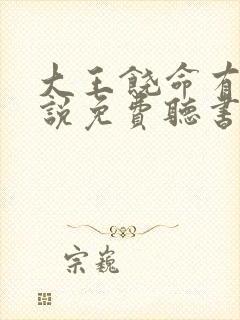 大王饒命有
說免費聽書
宗巍